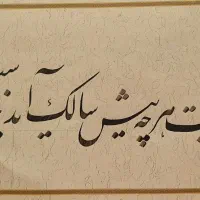 هرچه پیش سالک آید